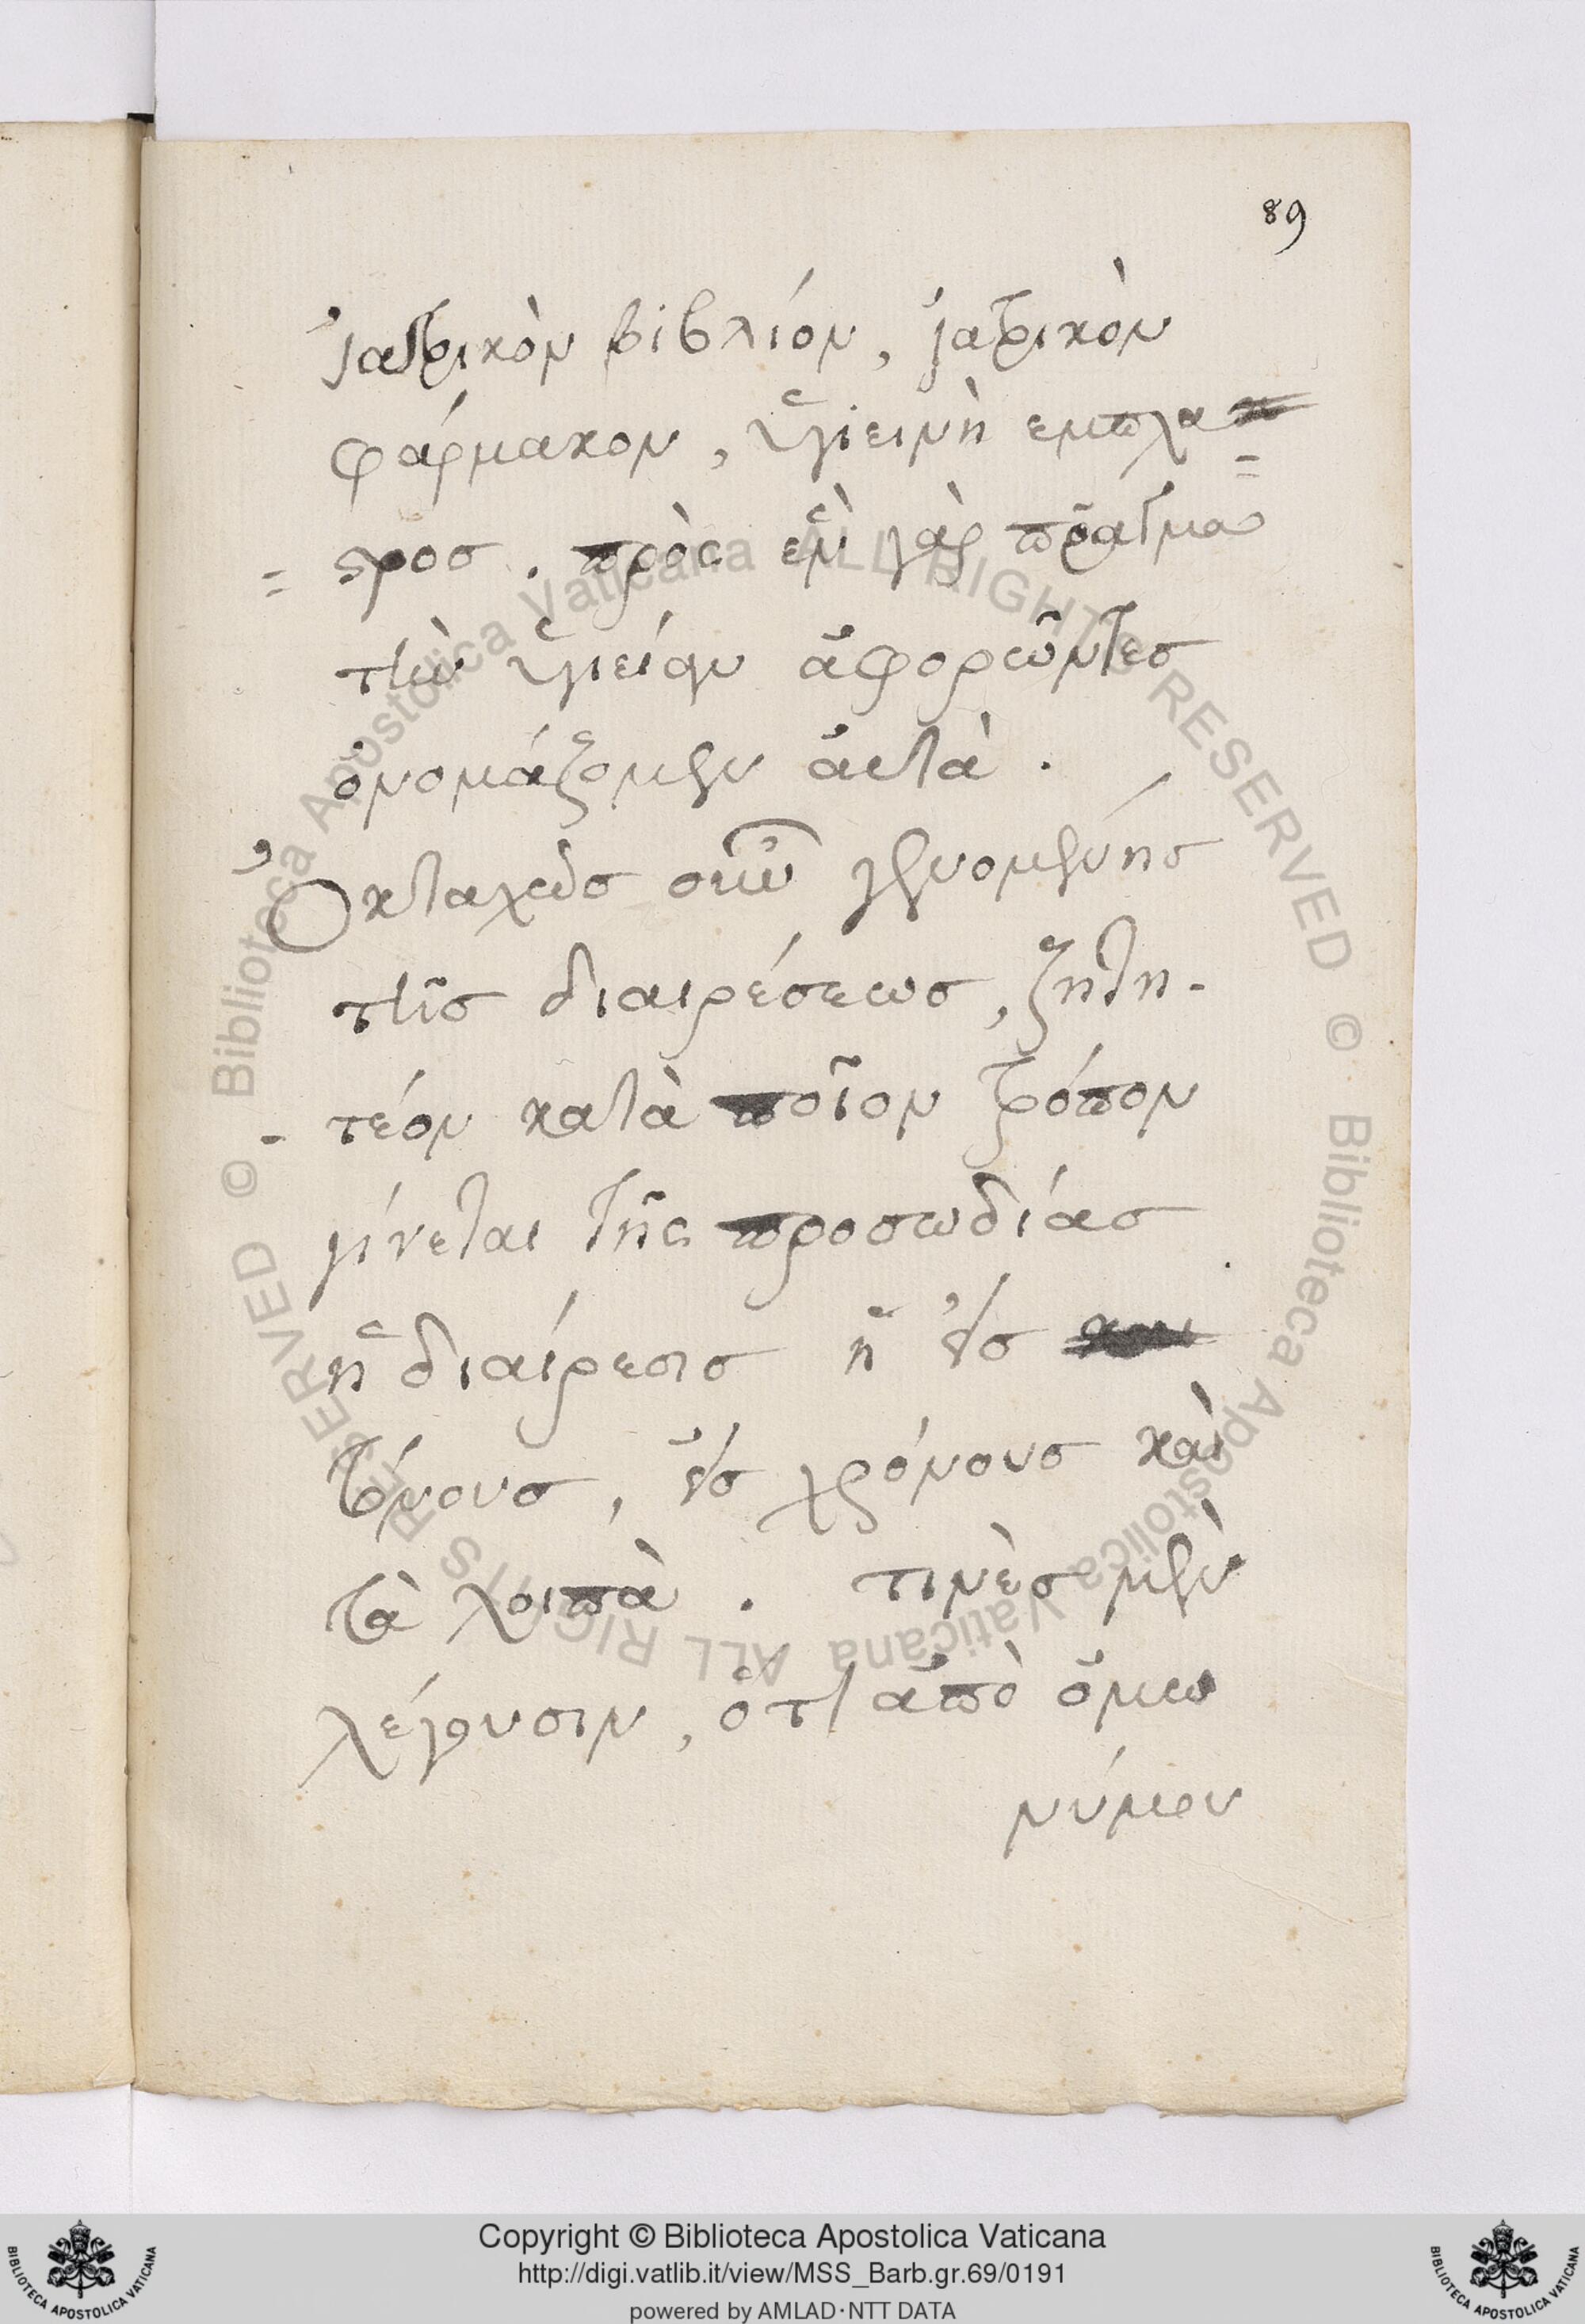 89
ἰατρικὸν βιβλίον, ἰατρικὸν
φάρμακον, ὑγιεινὴ εμπλα=
=στροσ. πρὸς ἓν γὰρ πρᾶγμα
τὴν ὑγιείαν ἀφορῶντεσ
ὀνομάζομεν ἀυτὰ.
Ὀκταχῶσ οὖν γενομένησ
τῆσ διαιρέσεωσ, ζητη-
-τέον κατὰ ποῖον τρόπον
γίνεται τῆς προσωδίασ
ἡ διαίρεσισ ἢ εἰσ
τόνουσ, εἰσ χρόνουσ καὶ
τὰ λοιπὰ. τινὲσ μὲν
λέγουσιν, ὅτι ἀπὸ ὁμω
νύμου
© Biblioteca Apostolica Vaticana ALL RIGHTS RESERVED © Biblioteca Apostolica Vaticana ALL RIGHTS RESERVED
Copyright © Biblioteca Apostolica Vaticana
http://digi.vatlib.it/view/MSS_Barb.gr.69/0191
powered by AMLAD·NTT DATA
BIBLIOTECA APOSTOLICA VATICANA
BIBLIOTECA APOSTOLICA VATICANA